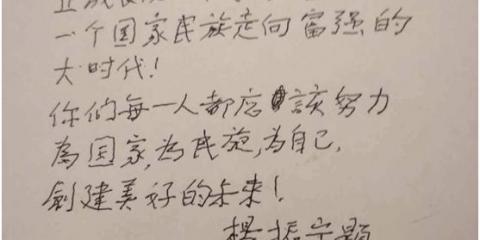 一个国家民族走向富强的
大时代!
你们每一人都应該努力
為国家,為民族,為自己,
創建美好的未来!
楊振宁題